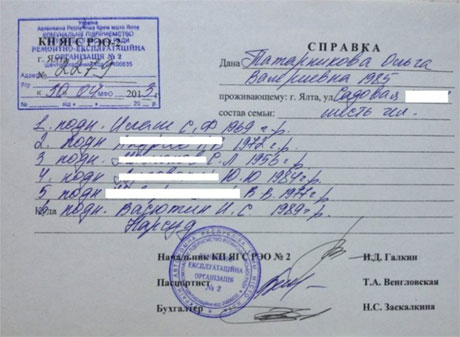 Україна
Автономна Республіка Крим місто Ялта
КОМУНАЛЬНЕ ПІДПРИЄМСТВО
КП ЯГС РЭО-2
РЕМОНТНО-ЕКСПЛУАТАЦІЙНА
ОРГАНІЗАЦІЯ № 2
г. Ялта
№ 2279
« 30 » 04 2013 г.
СПРАВКА
Дана Татарникова Ольга
Валериевна 1985
проживающему: г. Ялта, ул. Садовая
состав семьи: шесть чел.
1. подн. С.Ф 1969 г.р.
2. подн В 1972 г.р.
3 подн Л 1956 г.р.
4. подн. Ю.Ю 1984 г.р.
5 подн В.В. 1974 г.р.
6 подн. Васютин И.С 1989 г.р.
Нарсуд
Начальник КП ЯГС РЭО № 2 И.Д. Галкин
Паспортист Т.А. Венгловская
Бухгалтер Н.С. Заскалкина
ЕКСПЛУАТАЦІЙНА
ОРГАНІЗАЦІЯ
№ 2